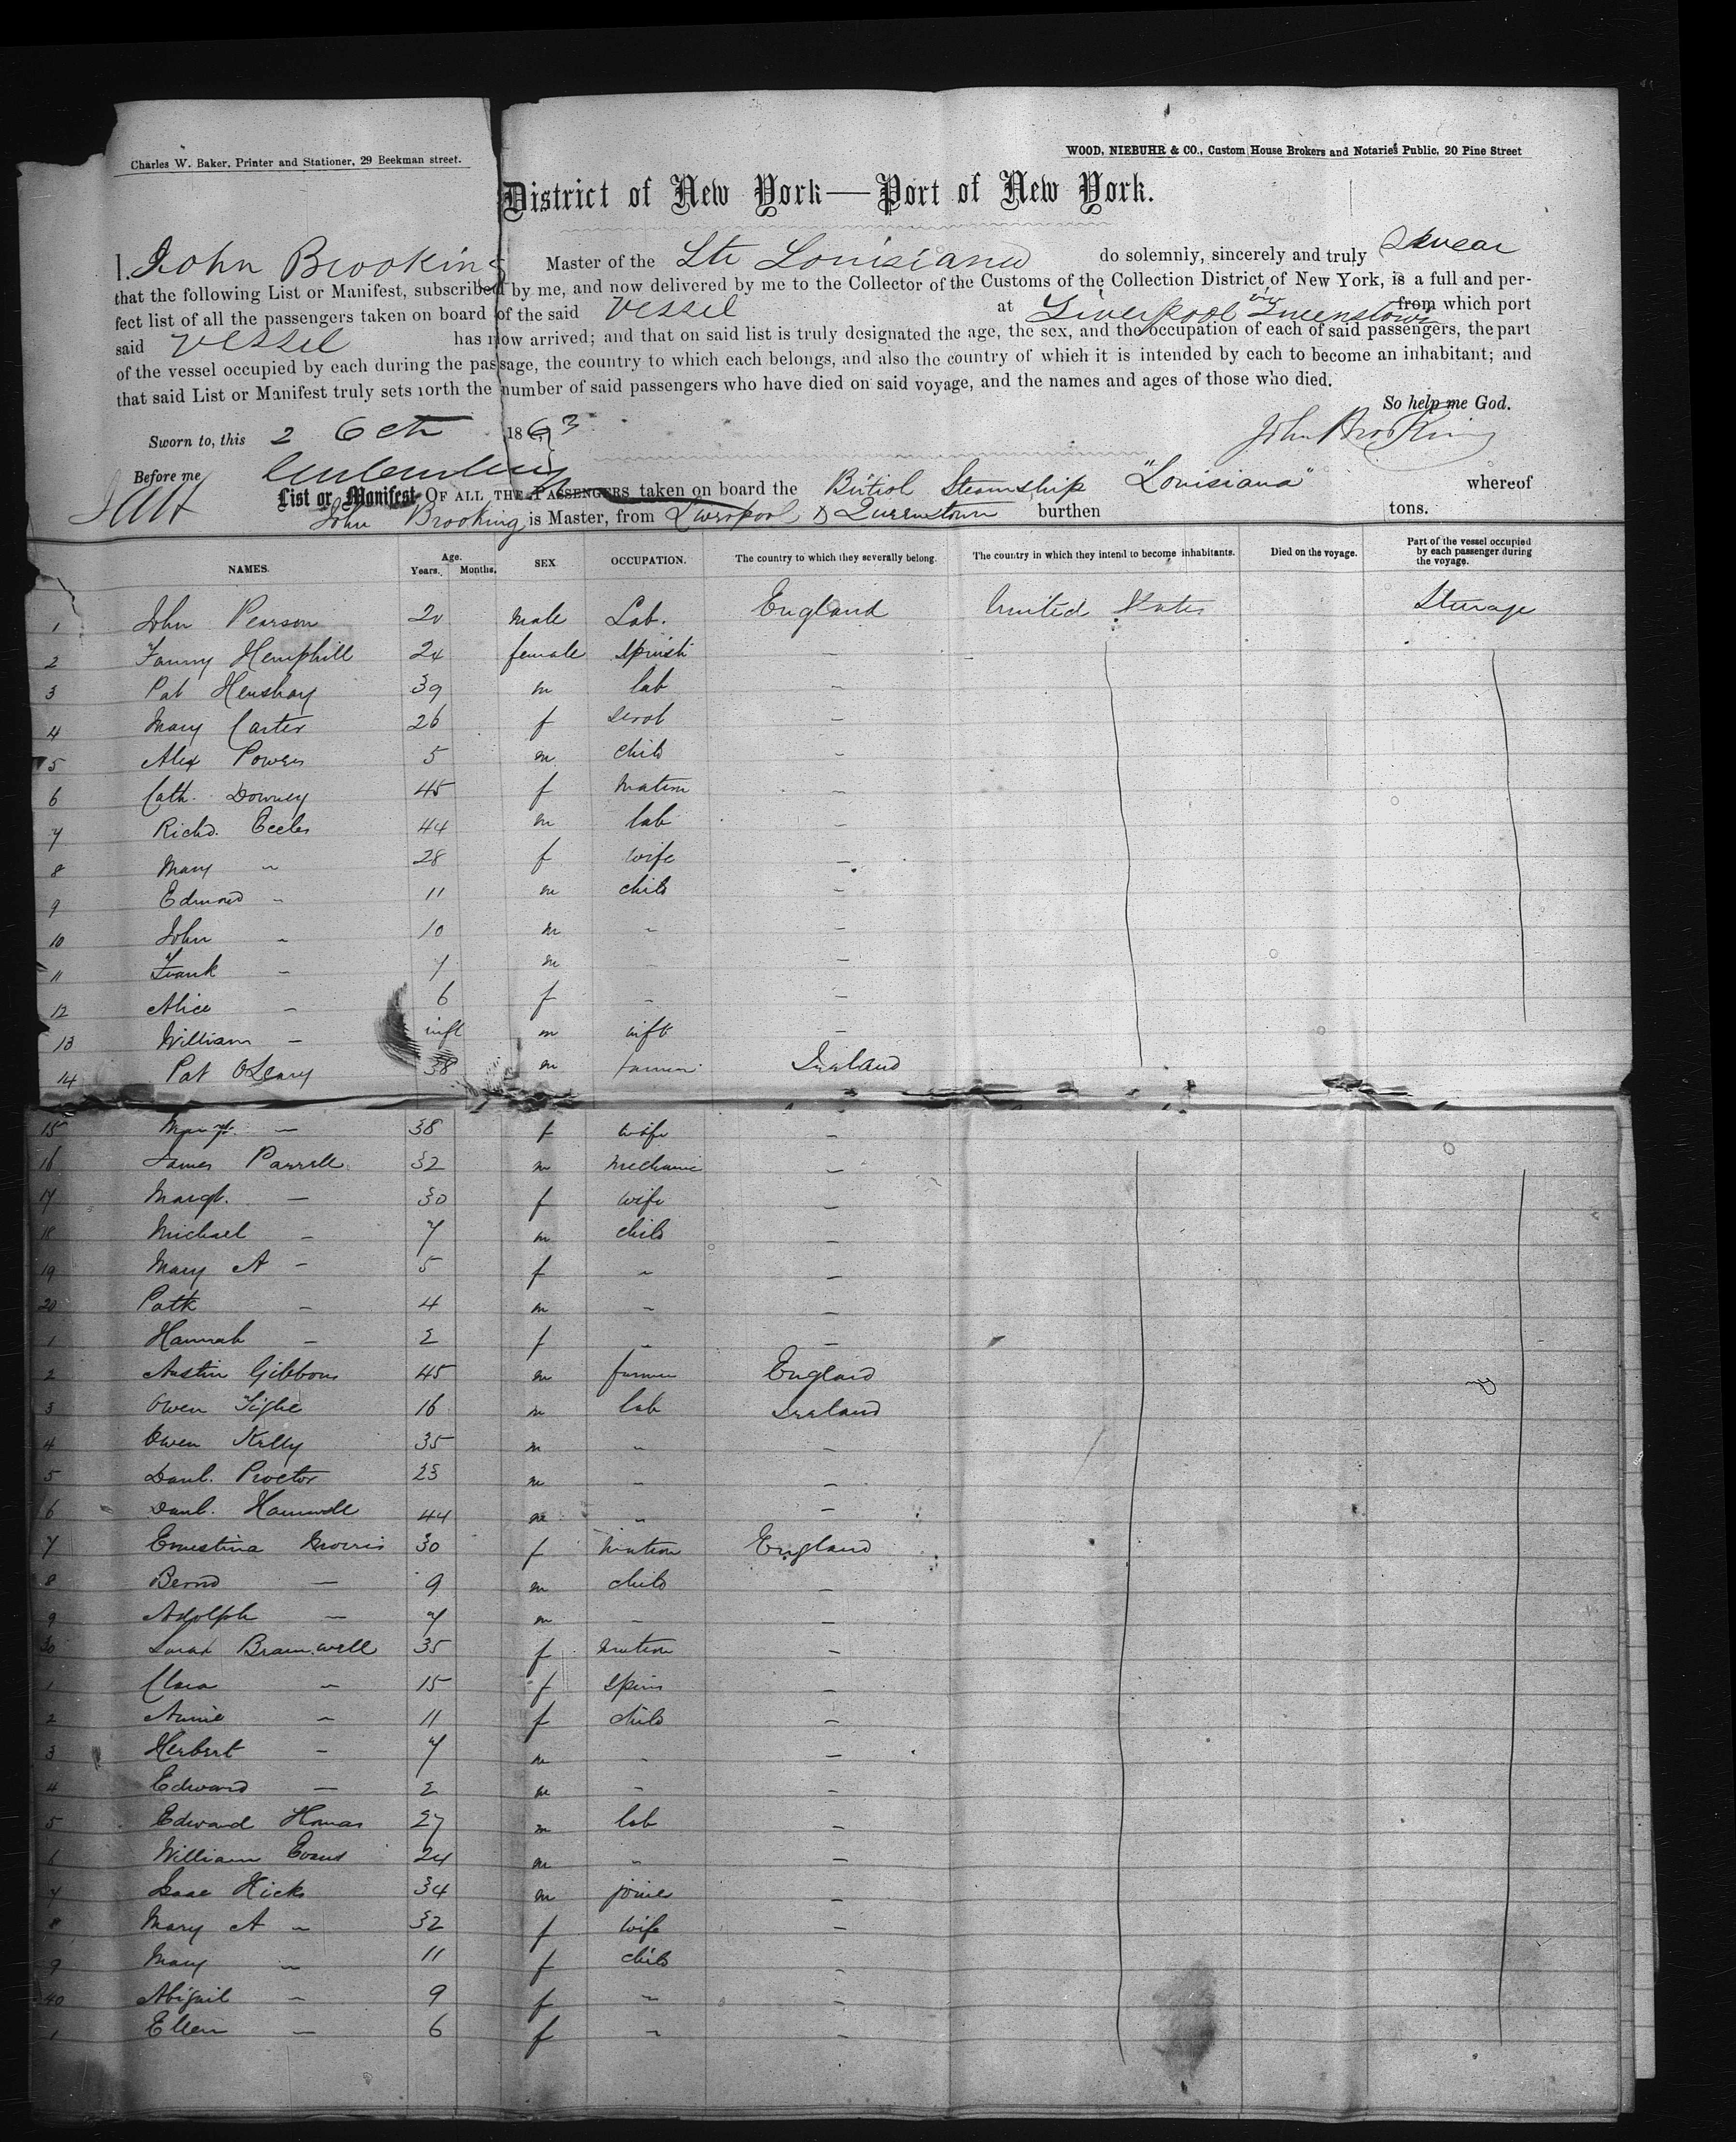 Charles W. Baker, Printer and Stationer, 29 Beekman street.
WOOD, NIEBUHR & CO., Custom House Brokers and Notaries Public, 20 Pine Street
District of New York—Port of New York.
I, John Brooking Master of the Str Louisiana do solemnly, sincerely and truly Swear
that the following List or Manifest, subscribed by me, and now delivered by me to the Collector of the Customs of the Collection District of New York, is a full and per-
fect list of all the passengers taken on board of the said Vessel at Liverpool via Queenstown from which port
said Vessel has now arrived; and that on said list is truly designated the age, the sex, and the occupation of each of said passengers, the part
of the vessel occupied by each during the passage, the country to which each belongs, and also the country of which it is intended by each to become an inhabitant; and
that said List or Manifest truly sets forth the number of said passengers who have died on said voyage, and the names and ages of those who died.
So help me God.
Sworn to, this 2 Oct 1863 John Brooking
Before me
List or Manifest OF ALL THE PASSENGERS taken on board the British Steamship "Louisiana" whereof
John Brooking is Master, from Liverpool & Queenstown burthen tons.
NAMES. Age. Years. Months. SEX OCCUPATION. The country to which they severally belong. The country in which they intend to become inhabitants. Died on the voyage. Part of the vessel occupied by each passenger during the voyage.
1 John Pearson 20 male Lab. England United States Sterage
2 Fanny Hemphill 24 female Spinst -
3 Pat Henshay 39 m lab -
4 Mary Carter 26 f -
5 Alex Powers 5 m child -
6 Cath. Downey 45 f matron -
7 Richd. Eccles 44 m lab -
8 Mary " 28 f wife -
9 Edmund " 11 m child -
10 John " 10 m " -
11 Frank - 7 m -
12 Alice - 6 f - -
13 William - inft m inft -
14 Pat OLeary 38 m farmer Ireland
15 Margt. - 38 f wife -
16 James Parrell 32 m mechanic -
17 Margt. - 30 f wife -
18 Michael - 7 m child -
19 Mary A - 5 f " -
20 Patk - 4 m " -
1 Hannah - 2 f " -
2 Austin Gibbons 45 m farmer England
3 Owen Tighe 16 m lab Ireland
4 Owen Kelly 35 m " -
5 Danl. Proctor 23 m " -
6 Danl. 44 m " -
7 Ernestina 30 f matron England
8 Bernd - 9 m child -
9 Adolph - 7 m " -
30 Sarah Bramwell 35 f matron -
1 Clara " 15 f spins -
2 Annie " 11 f child -
3 Herbert - 7 m " -
4 Edward - 2 m " -
5 Edward 27 m lab -
6 William Evans 24 m " -
7 Isaac Hicks 34 m joiner -
8 Mary A " 32 f wife -
9 Mary " 11 f child -
40 Abigail " 9 f " -
1 Ellen - 6 f " -